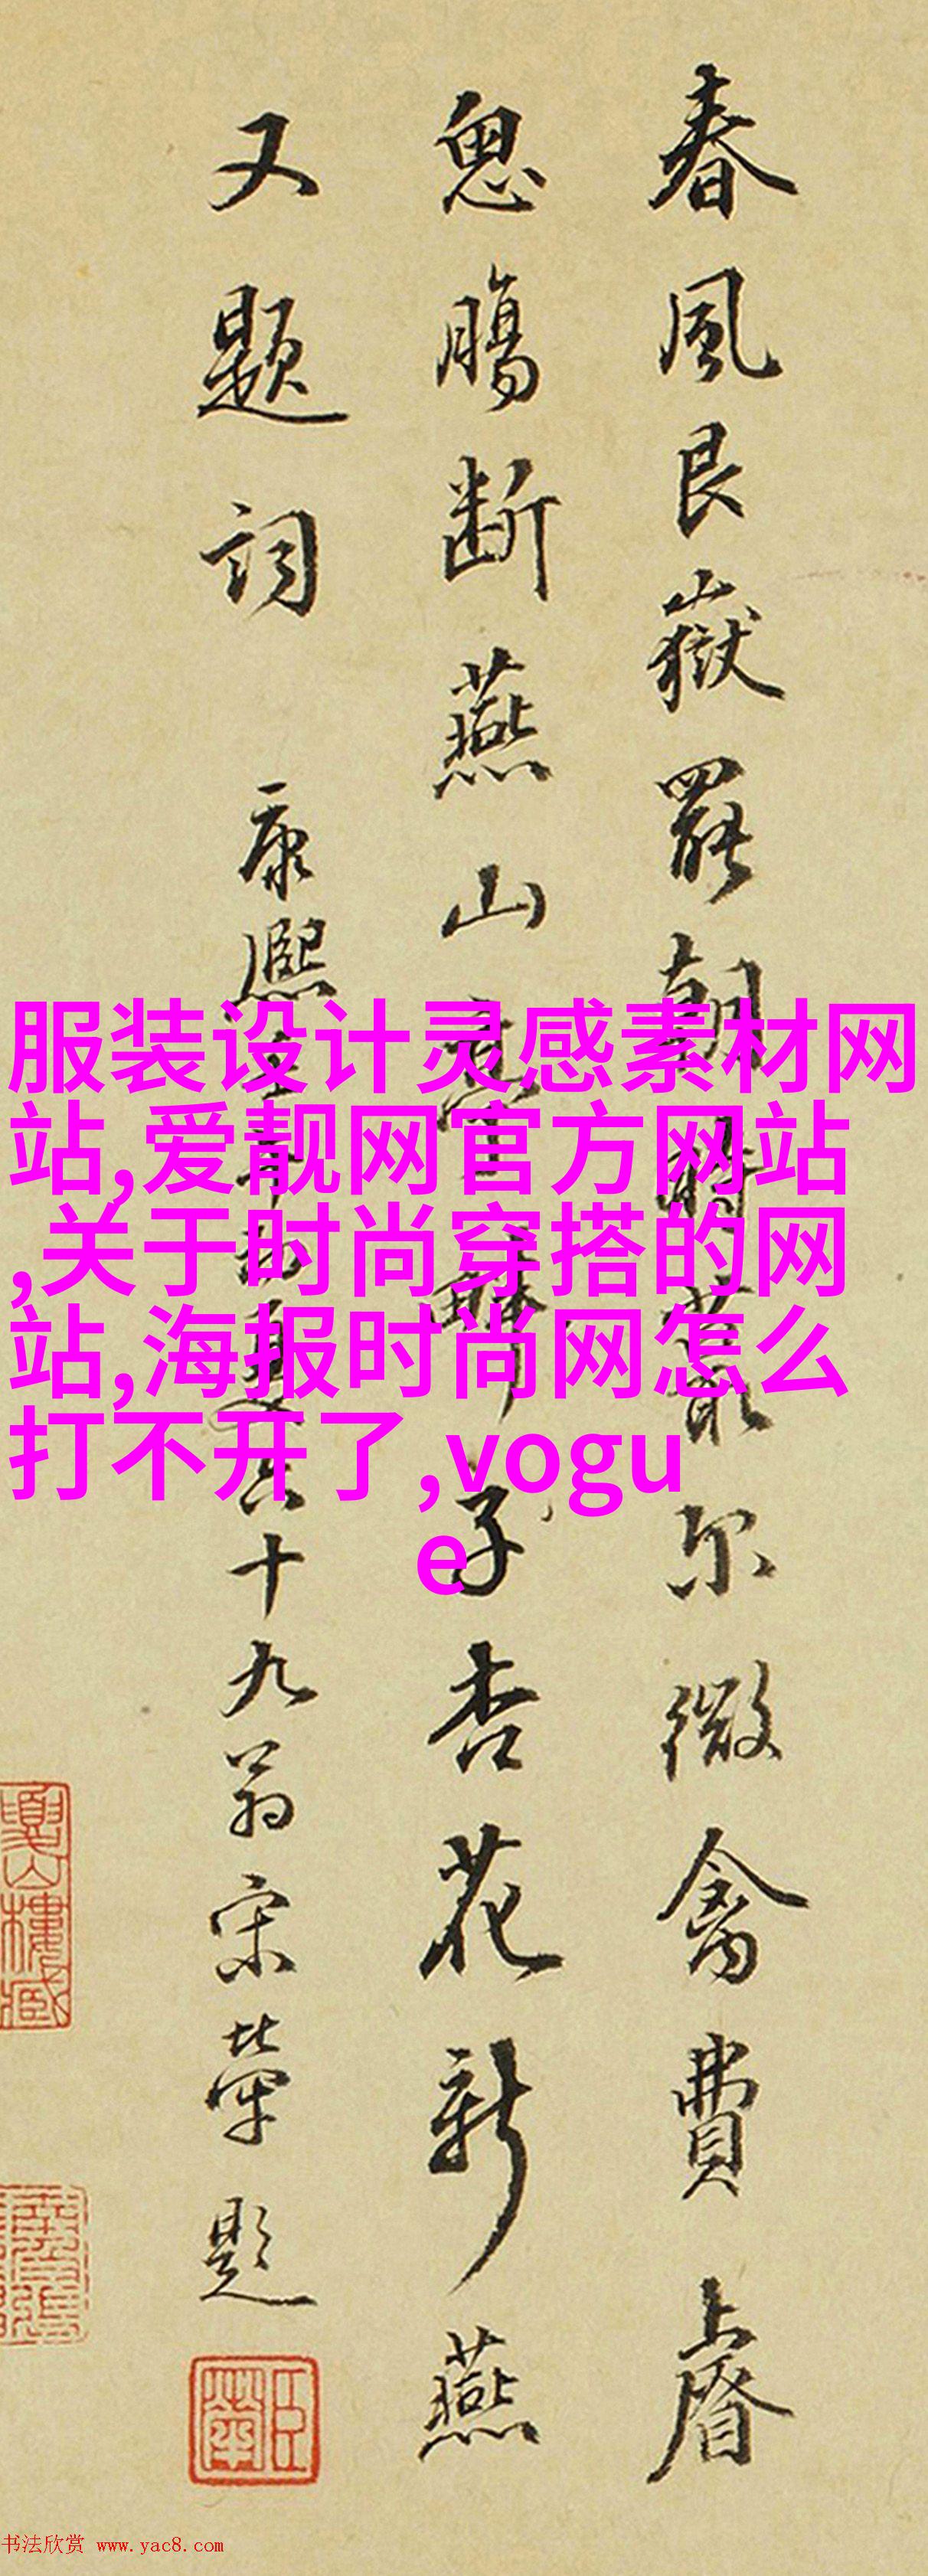 春風艮嶽罷朝時叢尔微禽費上睿
思腸斷燕山子杏花新燕
又題詞
康熙十九翁宋犖題
服装设计灵感素材网
站,爱靓网官方网站
,关于时尚穿搭的网
站,海报时尚网怎么
打不开了,vogu
e
书法欣赏 www.yac8.com